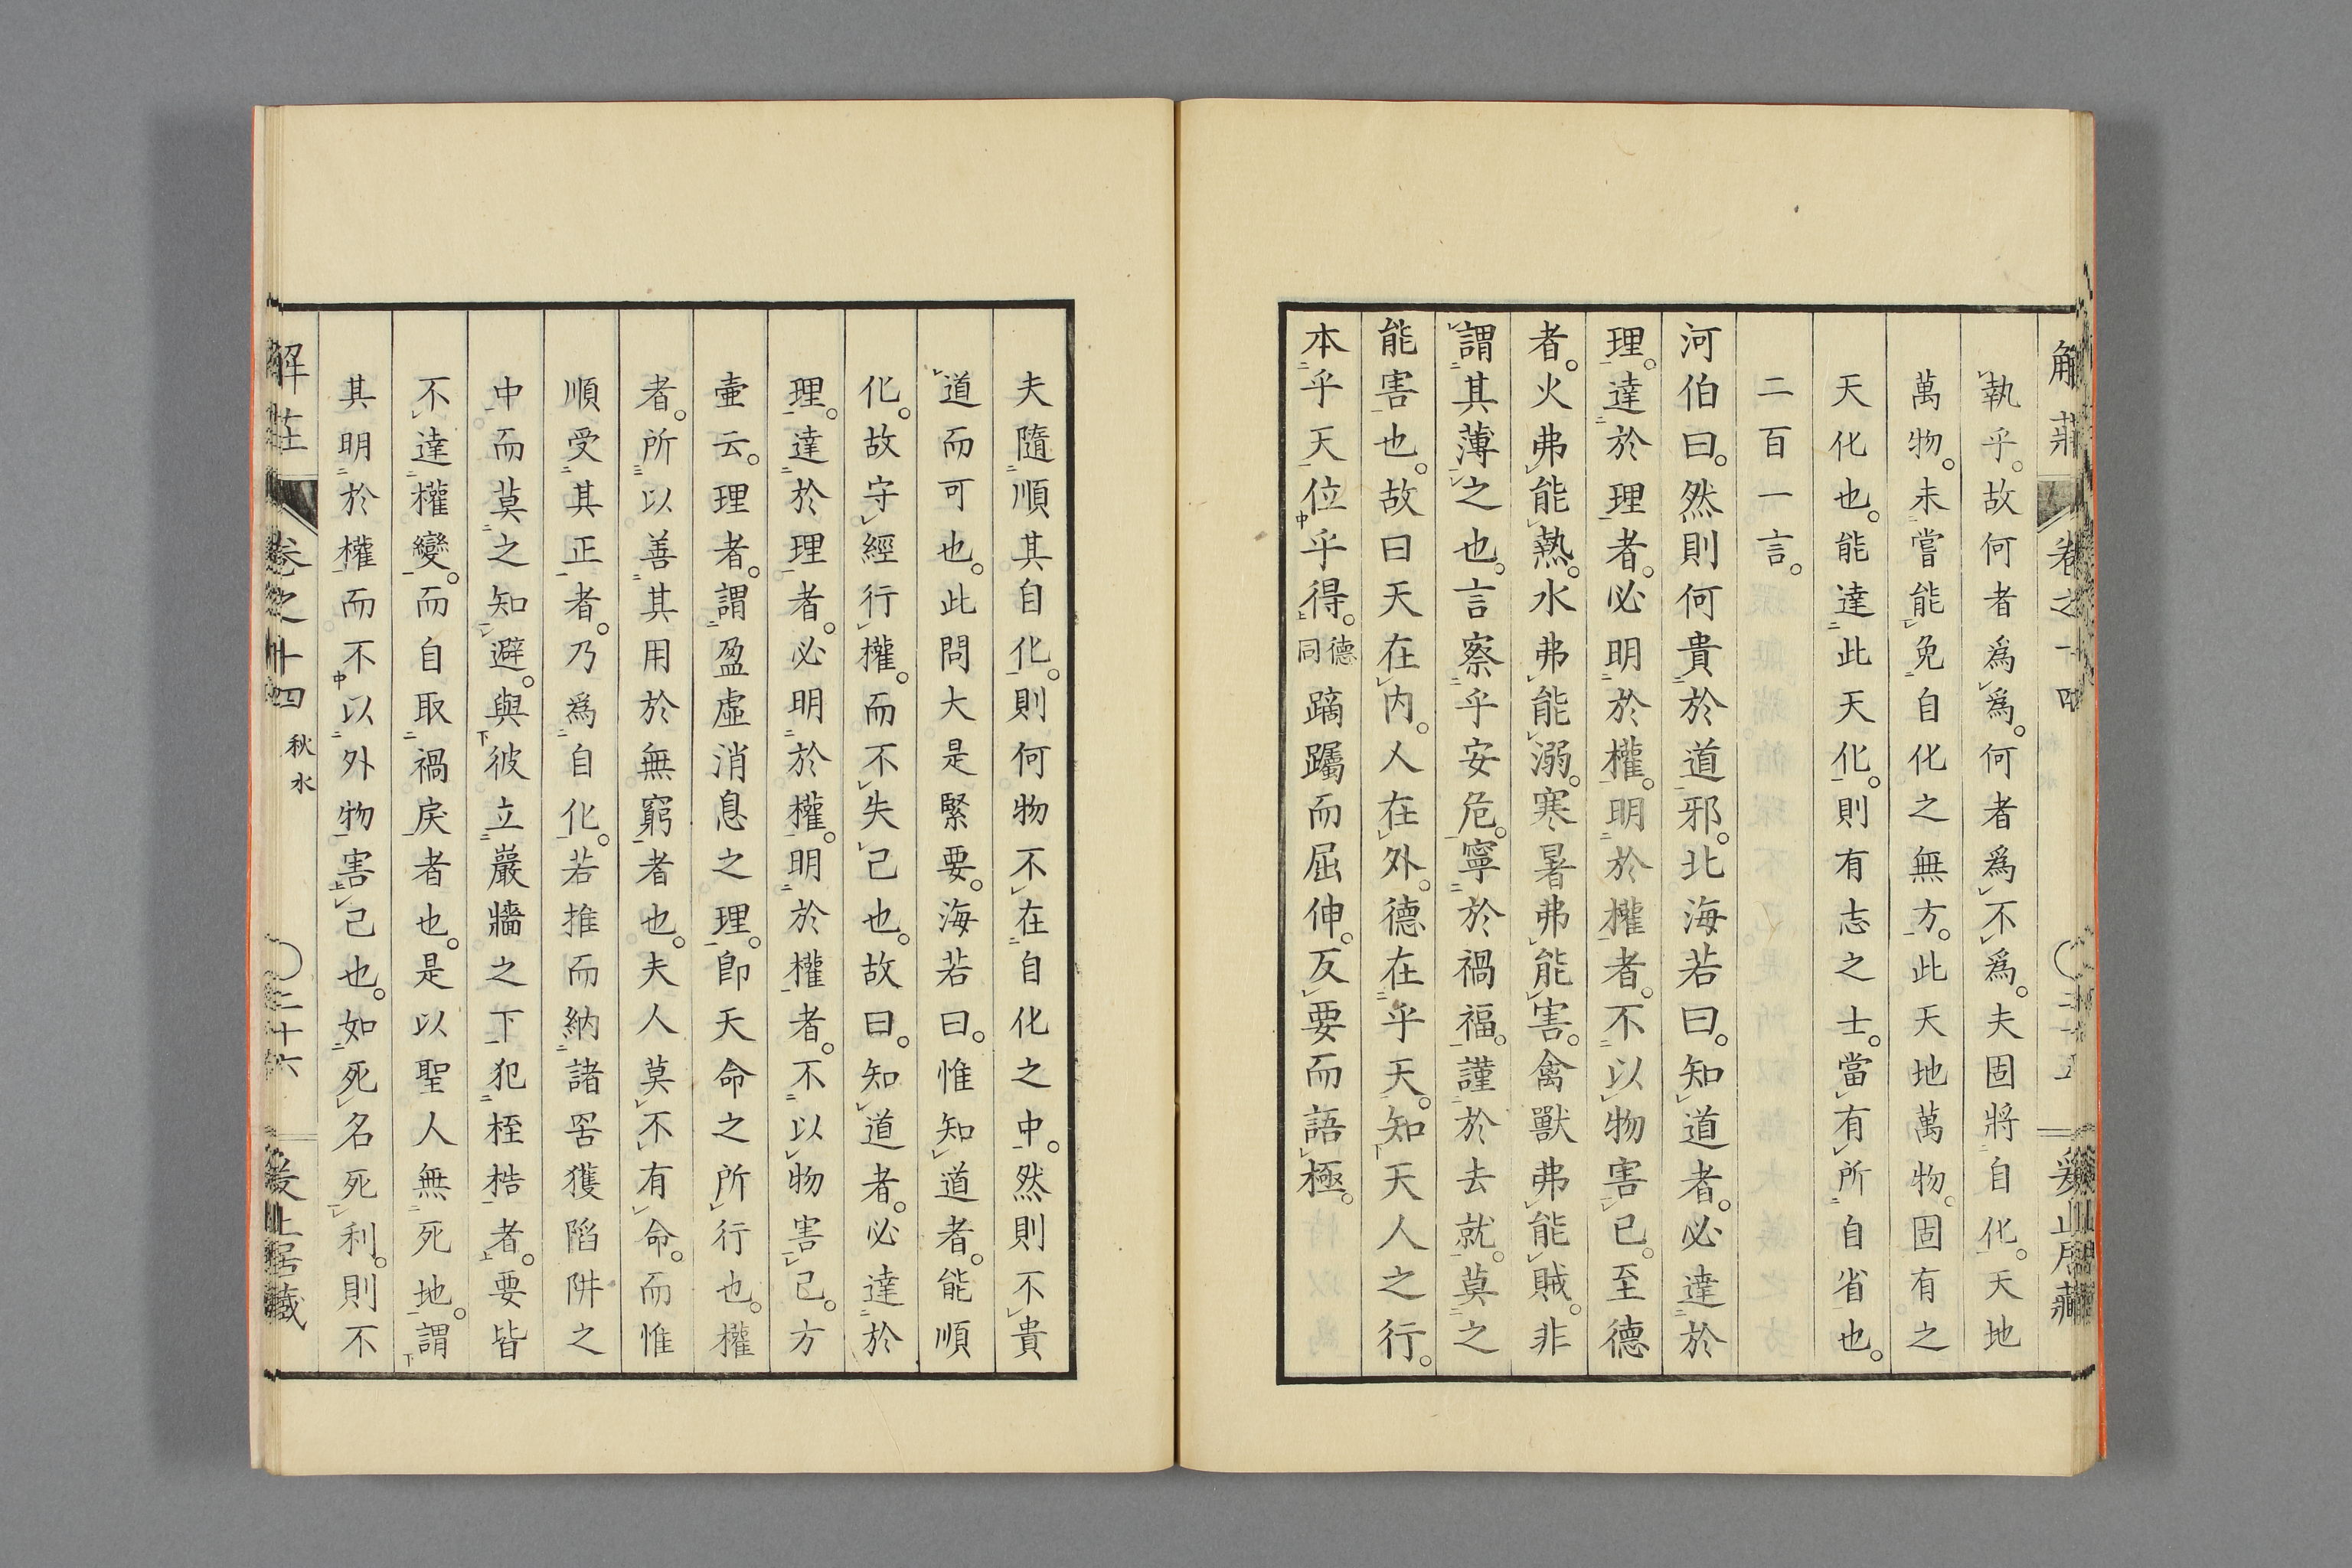 執乎。故何者爲爲。何者爲不爲。夫固將自化。天地
萬物。未嘗能免自化之無方。此天地萬物。固有之
天化也。能達此天化。則有志之士。當有所自省也。
二百一言。
河伯曰。然則何貴於道邪。北海若曰。知道者。必達於
理。達於理者。必明於權。明於權者。不以物害已。至德
者。火弗能熱。水弗能溺。寒暑弗能害。禽獸弗能賊。非
謂其薄之也。言察乎安危。寧於禍福。謹於去就。莫之
能害也。故曰天在內。人在外。德在乎天。知天人之行。
本乎天位乎得。德同蹢躅而屈伸。反要而語極。
夫隨順其自化。則何物不在自化之中。然則不貴
道而可也。此問大是緊要。海若曰。惟知道者。能順
化。故守經行權。而不失己也。故曰。知道者。必達於
理。達於理者。必明於權。明於權者。不以物害已。方
壷云。理者。謂盈虛消息之理。卽天命之所行也。權
者。所以善其用於無窮者也。夫人莫不有命。而惟
順受其正者。乃爲自化。若推而納諸罟獲陷阱之
中而莫之知避。與彼立巖牆之下犯桎梏者。要皆
不達權變。而自取禍戾者也。是以聖人無死地。謂
其明於權而不以外物害己也。如死名死利。則不
解莊 卷之十四 秋水 二十六